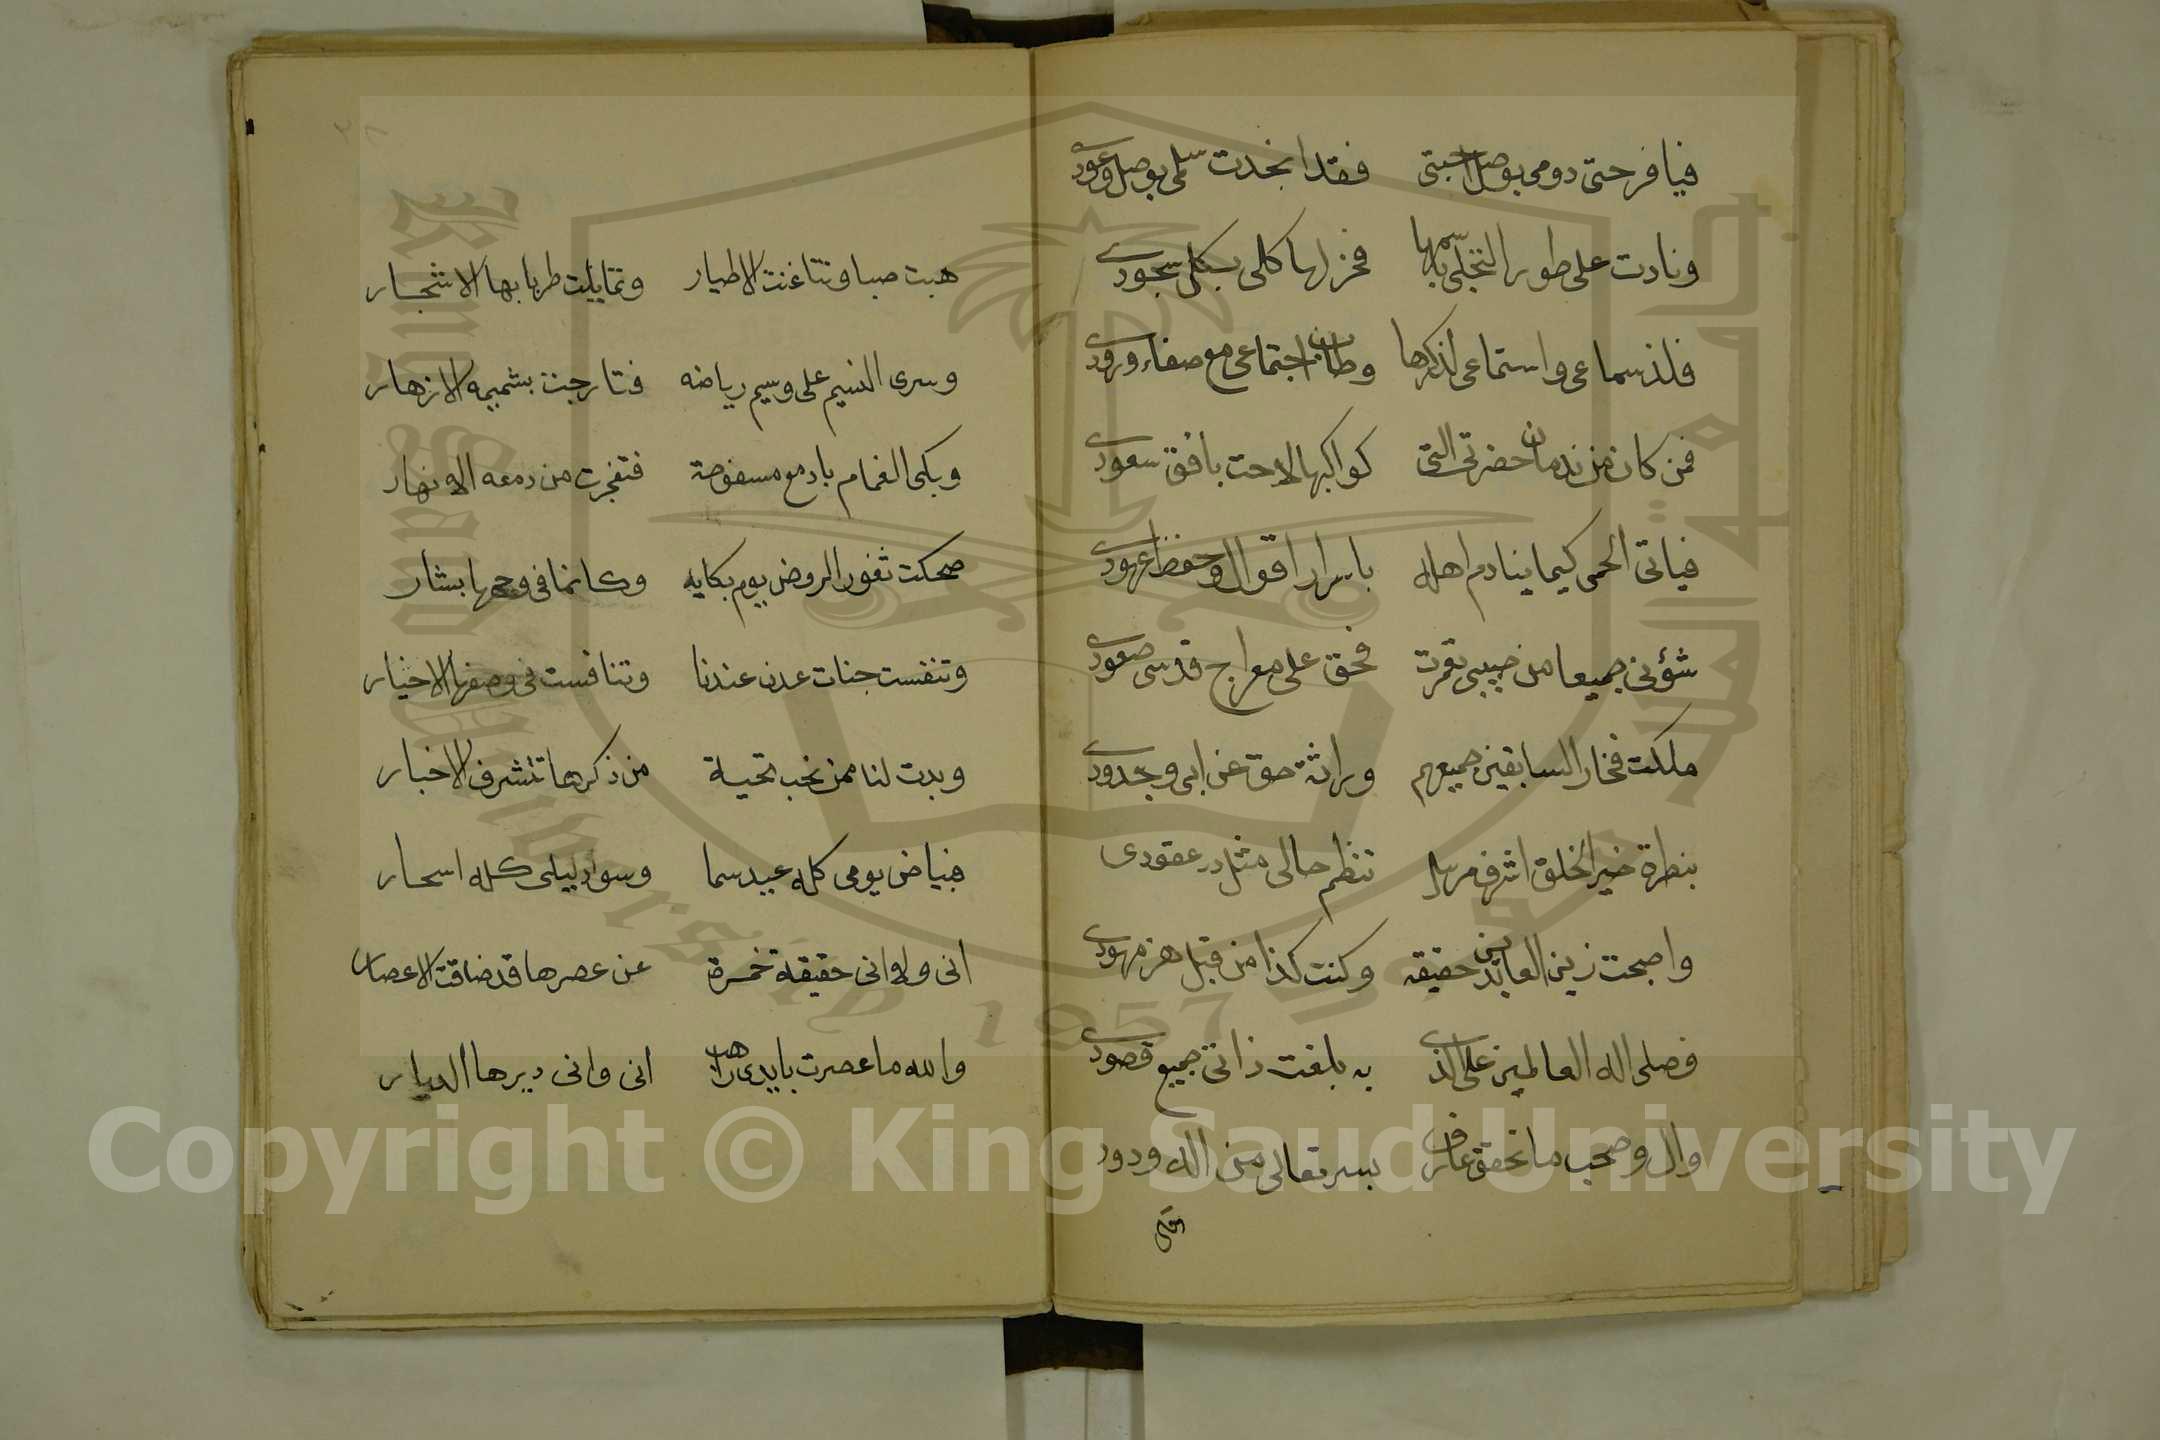 فيا فرحتى دومى بوصل احبتى فقد انجدت سلمى بوصل وعودى
ونادت على طور التجلى باسمها فخر لها كلى بكل سجودى
فلذ سماعى واستماعى لذكرها وطاب اجتماعى مع صفاء ورودى
فمن كان من ندمان حضرتى التى كواكبها لاحت بافق سعودى
فياتى الحمى كيما ينادم اهله باسرار اقوال وحفظ عهودى
شؤنى جميعا من حبيبى تقررت فحق على معراج قدسى صعودى
ملكت فخار السابقين جميعهم وراثة حق عن ابى وجدودى
بنظرة خير الخلق اشرف مرسل تنظم حالى مثل در عقودى
واصبحت زين العابدين حقيقه وكنت كذا من قبل هز مهودى
فصلى اله العالمين على الذى به بلغت ذاتى جميع قصودى
وال وصحب ما تحقق عارف بسر تعالى من اله ودود
هبت صبا وتناغنت الاطيار وتمايلت طربا بها الاشجار
وسرى النسيم على وسيم رياضه فتارجت بشميمه الازهار
وبكى الغمام بادمع مسفوحة فتفجرت من دمعه الانهار
ضحكت ثغور الروض يوم بكايه وكانما فى وجهها بشار
وتنفست جنات عدن عندنا وتنافست فى وصفها الاخيار
وبدت لنا ممن نحب تحية من ذكرها تتشرف الاخبار
فبياض يومى كله عيد سما وسواد ليلى كله اسحار
انى ولاوانى حقيقة خمرة عن عصرها قد ضاقت الاعصار
والله ما عصرت بايدى راهب انى وانى ديرها الديار
Copyright © King Saud University
King Saud University
1957